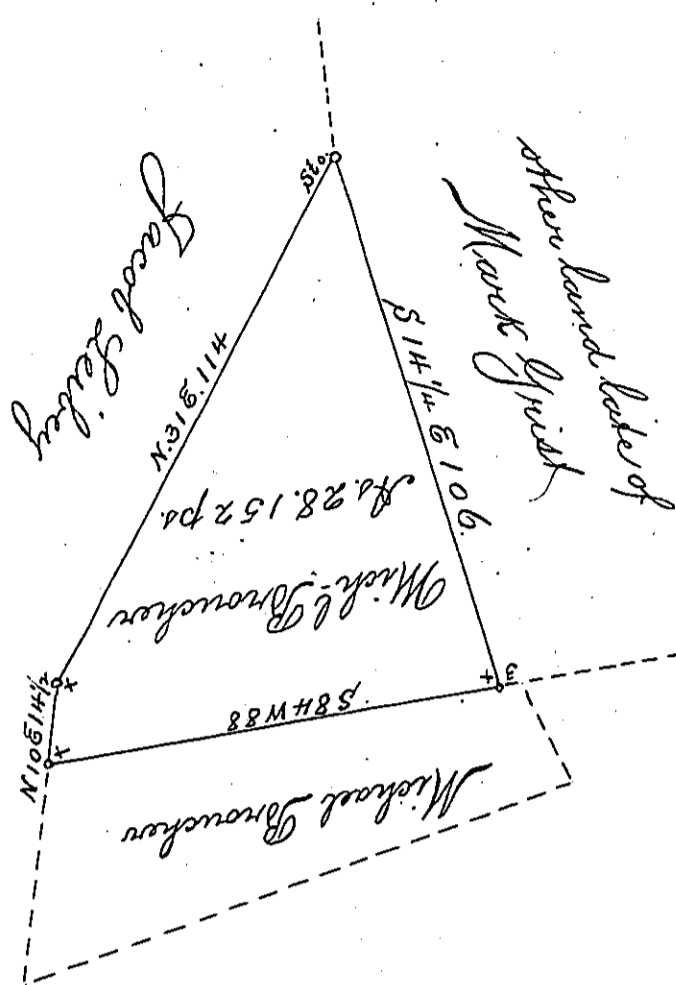 other land late of
Mark Grist
Jacob Leiby
Sto.
N.31E.114
S 14 1/4 E 106.
As.28.152 ps.
Michl Broucher
S84W88
N10E14 1/2
3
Michael Broucher